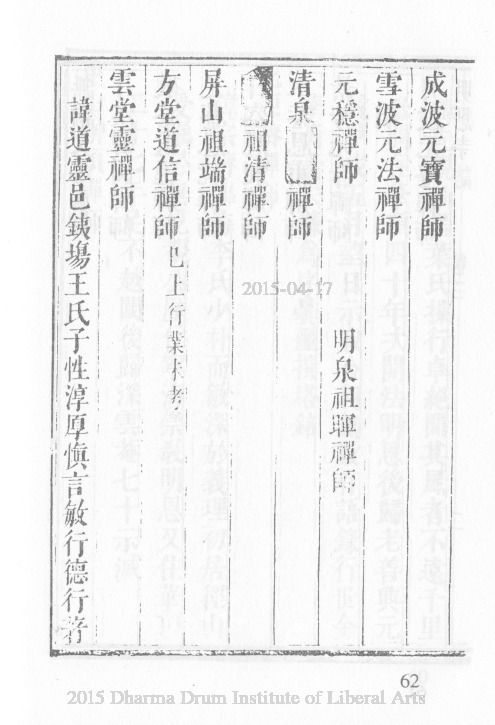 成波元寶禪師
雪波元法禪師
元穩禪師 明泉祖暉禪師
清泉 禪師
祖清禪師
屏山祖端禪師
方堂道信禪師 已上行業
雲堂靈禪師
諱道靈邑錢塲王氏子性淳厚慎言敏行德行著
2015-04-17
62
2015 Dharma Drum Institute of Liberal Arts